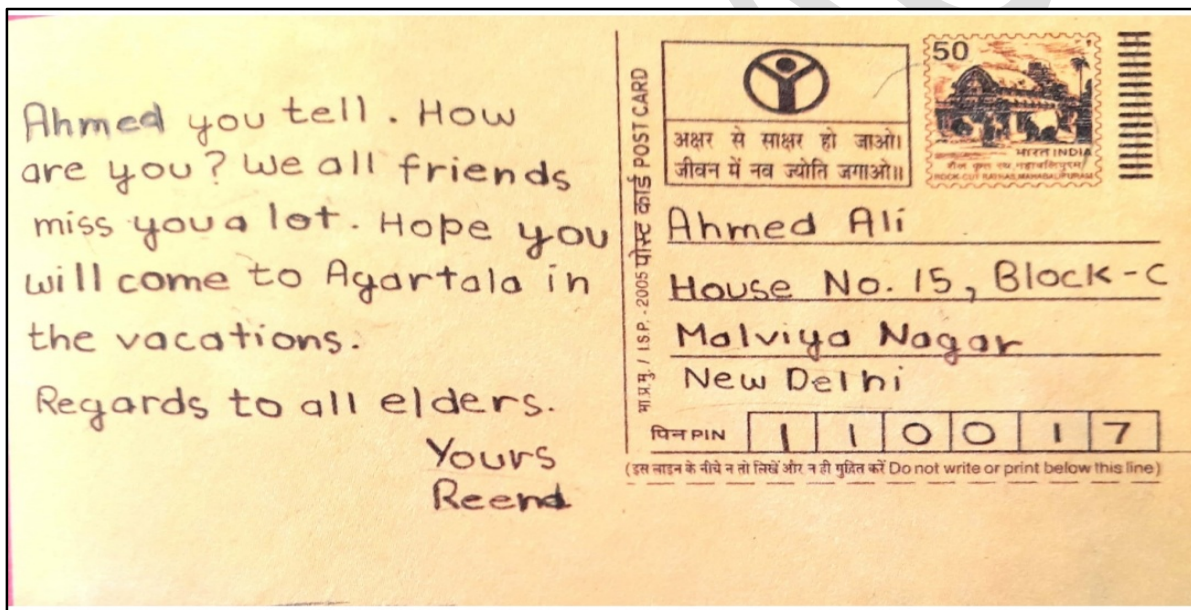 Ahmed you tell. How
are you? We all friends
miss you a lot. Hope you
will come to Agartala in
the vacations.
Regards to all elders.
Yours
Reena
मा.प्र.मु. / I.S.P.-2005 पोस्ट कार्ड POST CARD
अक्षर से साक्षर हो जाओ।
जीवन में नव ज्योति जगाओ॥
50
भारत INDIA
ROCK-CUT RATHAS MAHABALIPURAM
Ahmed Ali
House No. 15, Block-C
Malviya Nagar
New Delhi
पिन PIN 110017
(इस लाइन के नीचे न तो लिखें और न ही मुद्रित करें Do not write or print below this line)